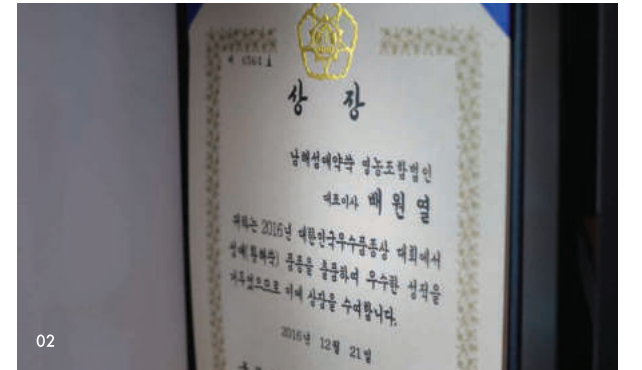 제 4364 호
상 장
남해섬애약쑥 영농조합법인
대표이사 배 원 열
귀하는 2016년 대한민국우수품종상 대회에서
섬애(황해쑥) 품종을 출품하여 우수한 성적을
거두었으므로 이에 상장을 수여합니다.
2016년 12월 21일
02